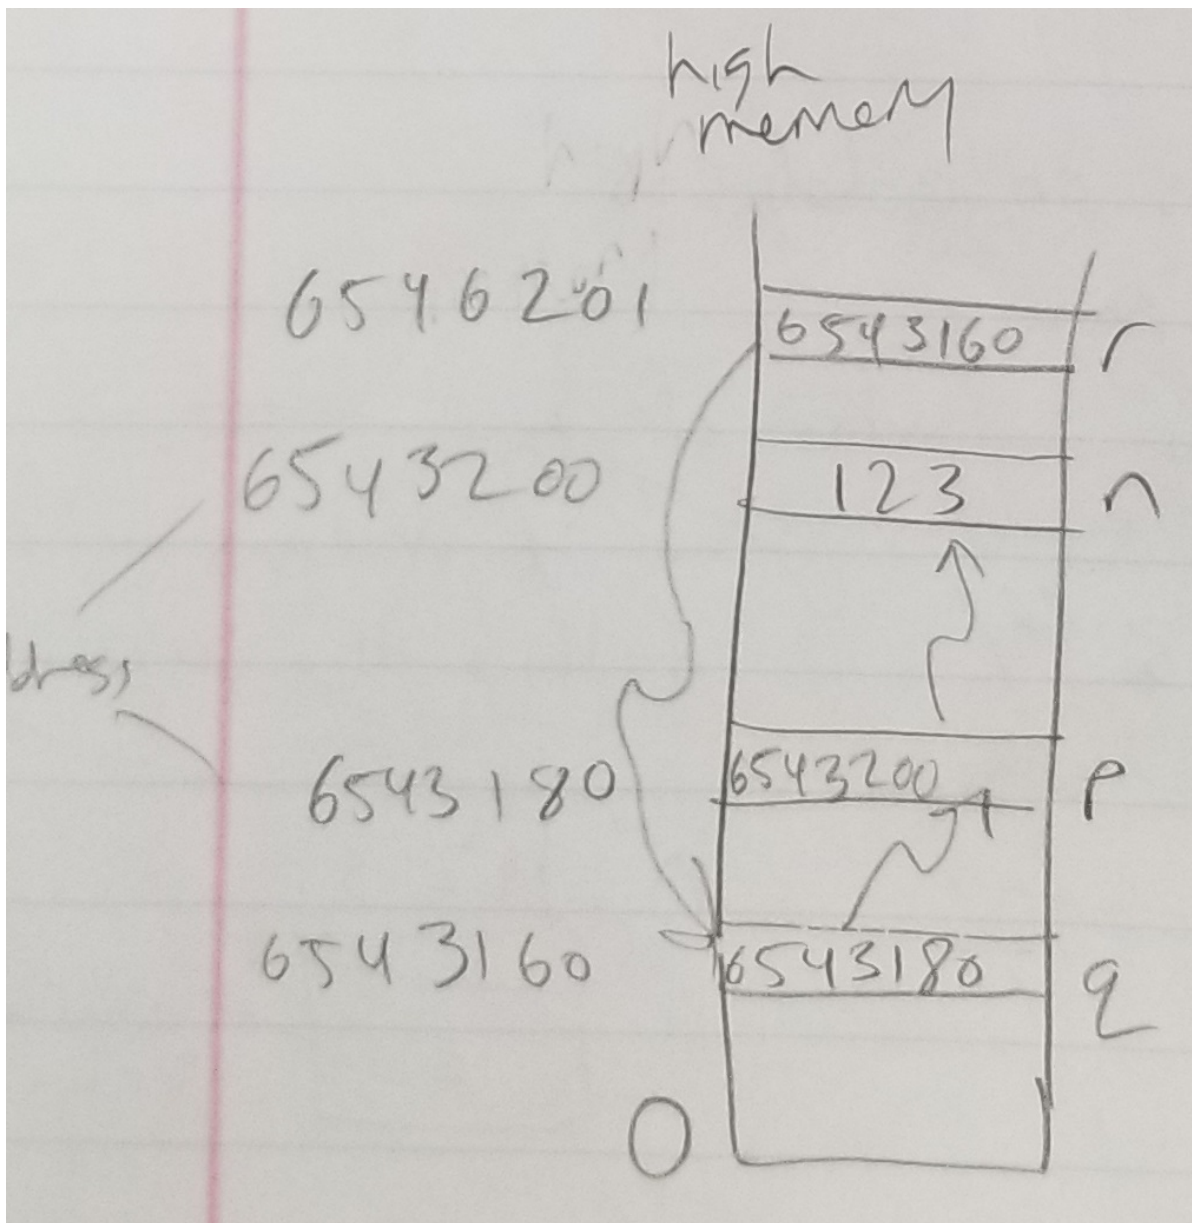 high
memory
6546201 6543160 r
6543200 123 n
dress
6543180 6543200 p
6543160 6543180 q
0